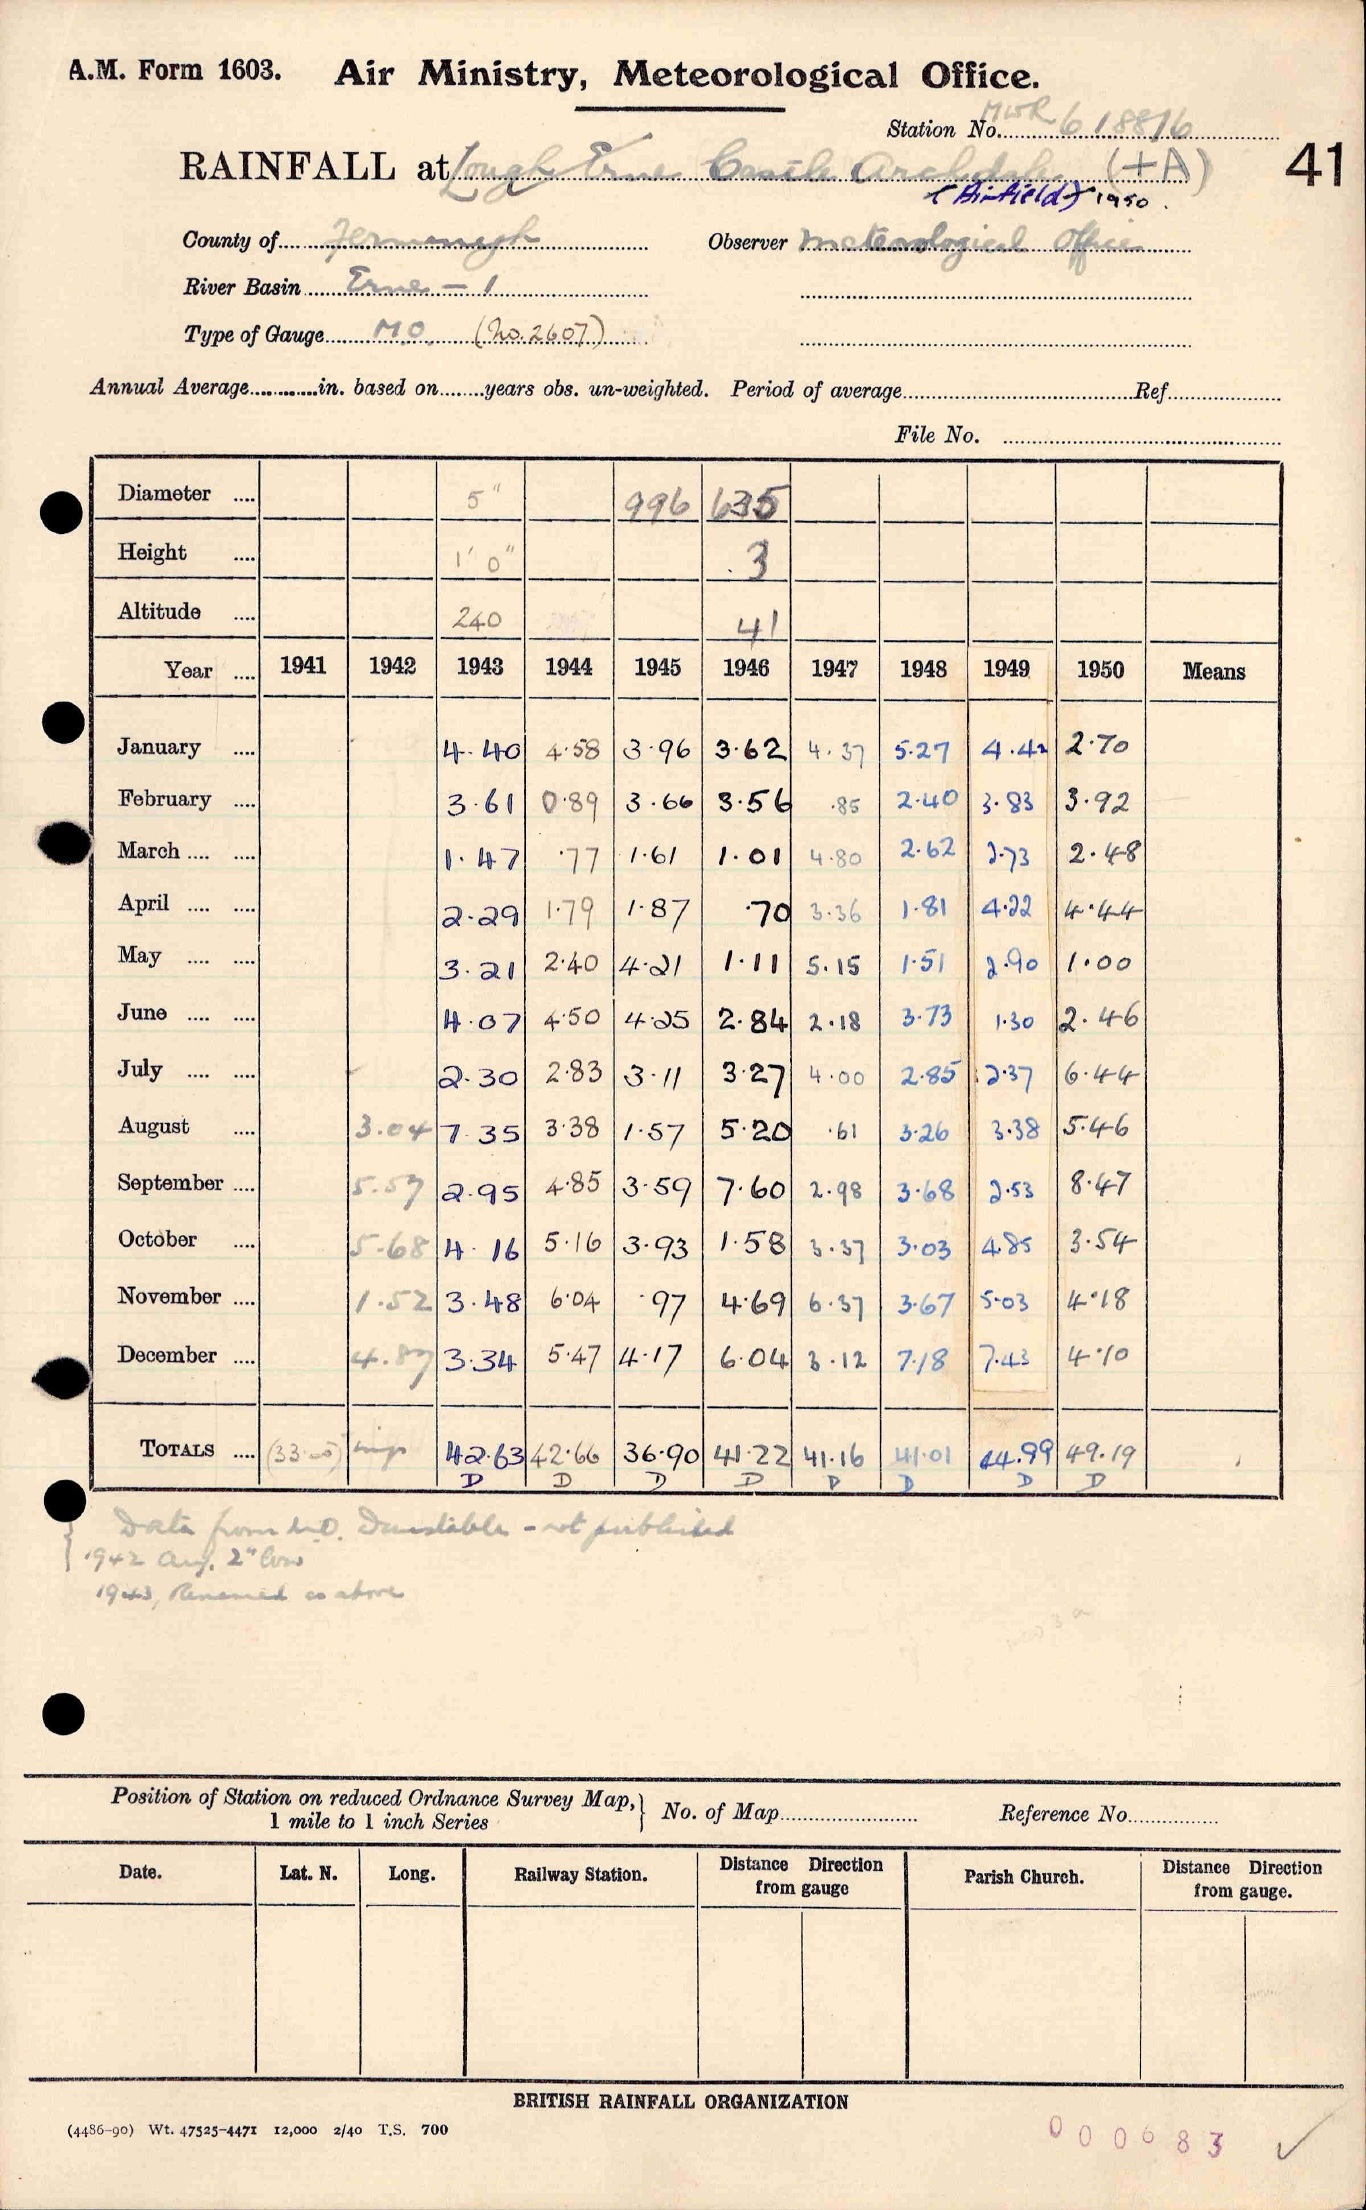 A.M. Form 1603. Air Ministry, Meteorological Office.
Station No. MWR 618816
RAINFALL at Lough Erne Castle Archdale (+A) 41
(Airfield) 1950.
County of Fermanagh Observer Meteorological Office
River Basin Erne - 1
Type of Gauge M.O. (No. 2607)
Annual Average............in. based on........years obs. un-weighted. Period of average........Ref........
File No. ........
Diameter .... 5" 996 635
Height .... 1' 0" 3
Altitude .... 240 41
Year .... 1941 1942 1943 1944 1945 1946 1947 1948 1949 1950 Means
January .... 4.40 4.58 3.96 3.62 4.37 5.27 4.42 2.70
February .... 3.61 0.89 3.66 3.56 .85 2.40 3.83 3.92
March .... .... 1.47 .77 1.61 1.01 4.80 2.62 2.73 2.48
April .... .... 2.29 1.79 1.87 .70 3.36 1.81 4.22 4.44
May .... .... 3.21 2.40 4.21 1.11 5.15 1.51 2.90 1.00
June .... .... 4.07 4.50 4.25 2.84 2.18 3.73 1.30 2.46
July .... .... 2.30 2.83 3.11 3.27 4.00 2.85 2.37 6.44
August .... 3.04 7.35 3.38 1.57 5.20 .61 3.26 3.38 5.46
September .... 5.57 2.95 4.85 3.59 7.60 2.98 3.68 2.53 8.47
October .... 5.68 4.16 5.16 3.93 1.58 3.37 3.03 4.85 3.54
November .... 1.52 3.48 6.04 .97 4.69 6.37 3.67 5.03 4.18
December .... 4.87 3.34 5.47 4.17 6.04 3.12 7.18 7.43 4.10
TOTALS .... 42.63 42.66 36.90 41.22 41.16 41.01 44.99 49.19
D D D D D D D D
Data from M.O. Dunstable - not published
1942 Aug. 2" low
1943, Renamed as above
Position of Station on reduced Ordnance Survey Map, 1 mile to 1 inch Series } No. of Map........ Reference No........
Date. Lat. N. Long. Railway Station. Distance Direction from gauge Parish Church. Distance Direction from gauge.
BRITISH RAINFALL ORGANIZATION
(4486-90) Wt. 47525-4471 12,000 2/40 T.S. 700
000683